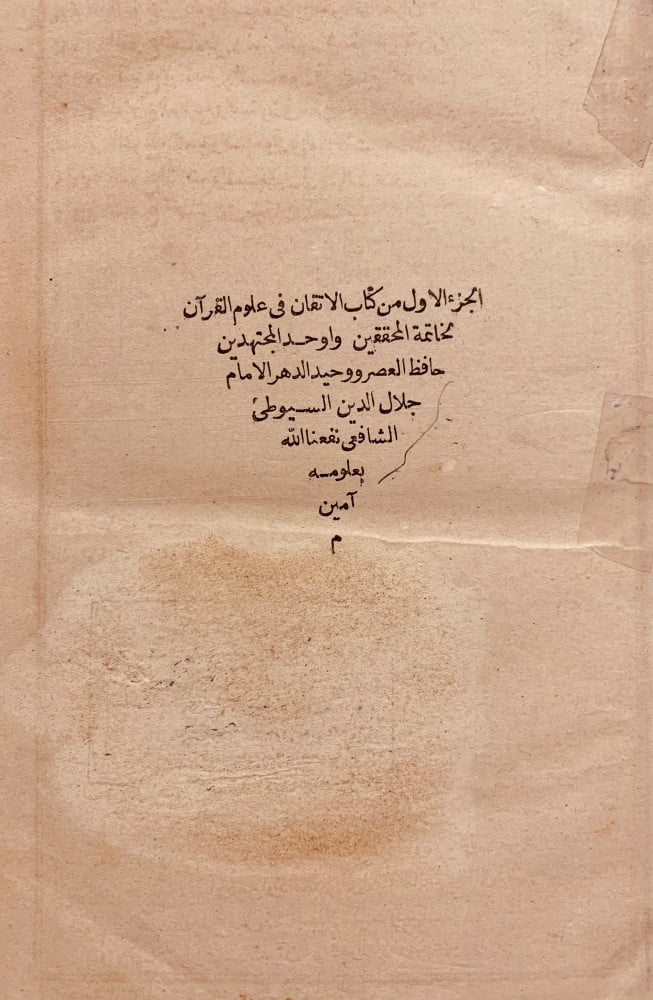 الجزء الاول من كتاب الاتقان فى علوم القرآن
لخاتمة المحققين واوحد المجتهدين
حافظ العصر ووحيد الدهر الامام
جلال الدين السيوطى
الشافعى نفعنا الله
بعلومه
آمين
م